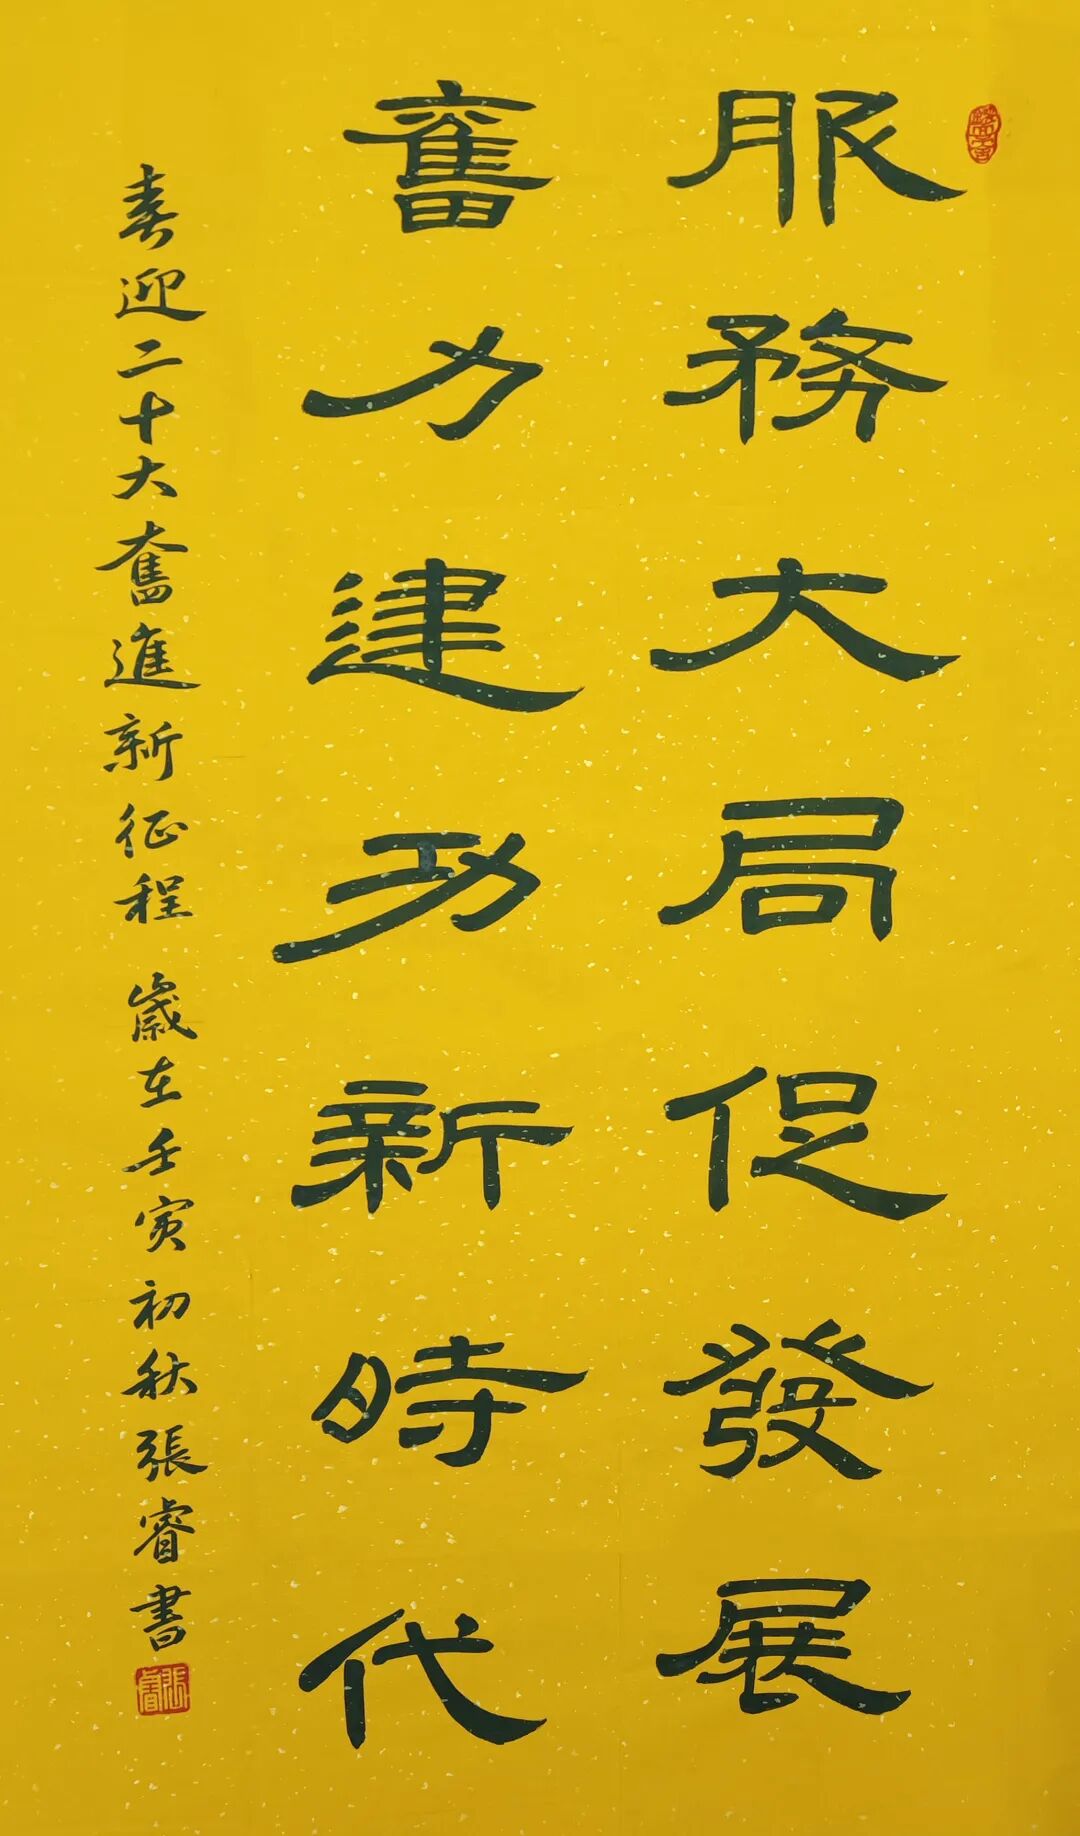 服務大局促發展
奮力建功新時代
喜迎二十大奮進新征程 歲在壬寅初秋張睿書
張睿